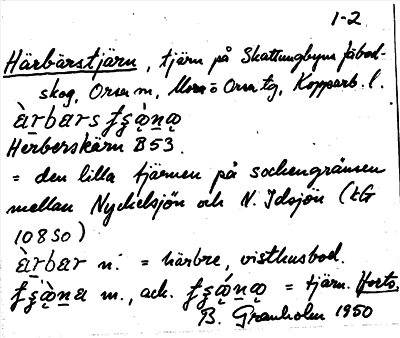 1-2
Härbärstjärn, tjärn på Skattungbyns fäbod-
skog, Orsa m, Mora o Orsa tg, Kopparb. l.
Herberskärn B53.
= den lilla tjärnen på sockengränsen
mellan Nyckelsjön och N. Idsjön (kG
10850)
àrbar n. = härbre, visthusbod.
m., ack. = tjärn. Forts.
B. Granholm 1950